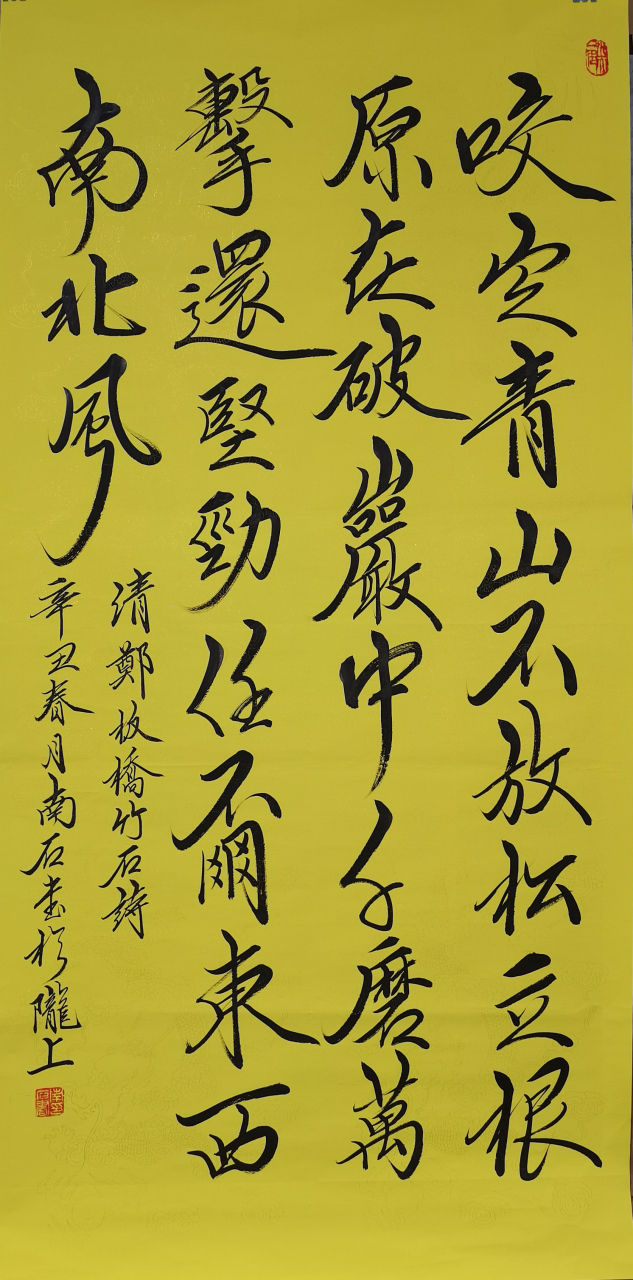 咬定青山不放松立根
原在破巖中千磨萬
擊還堅勁任爾東西
南北風
清鄭板橋竹石詩
辛丑春月南石書於隴上